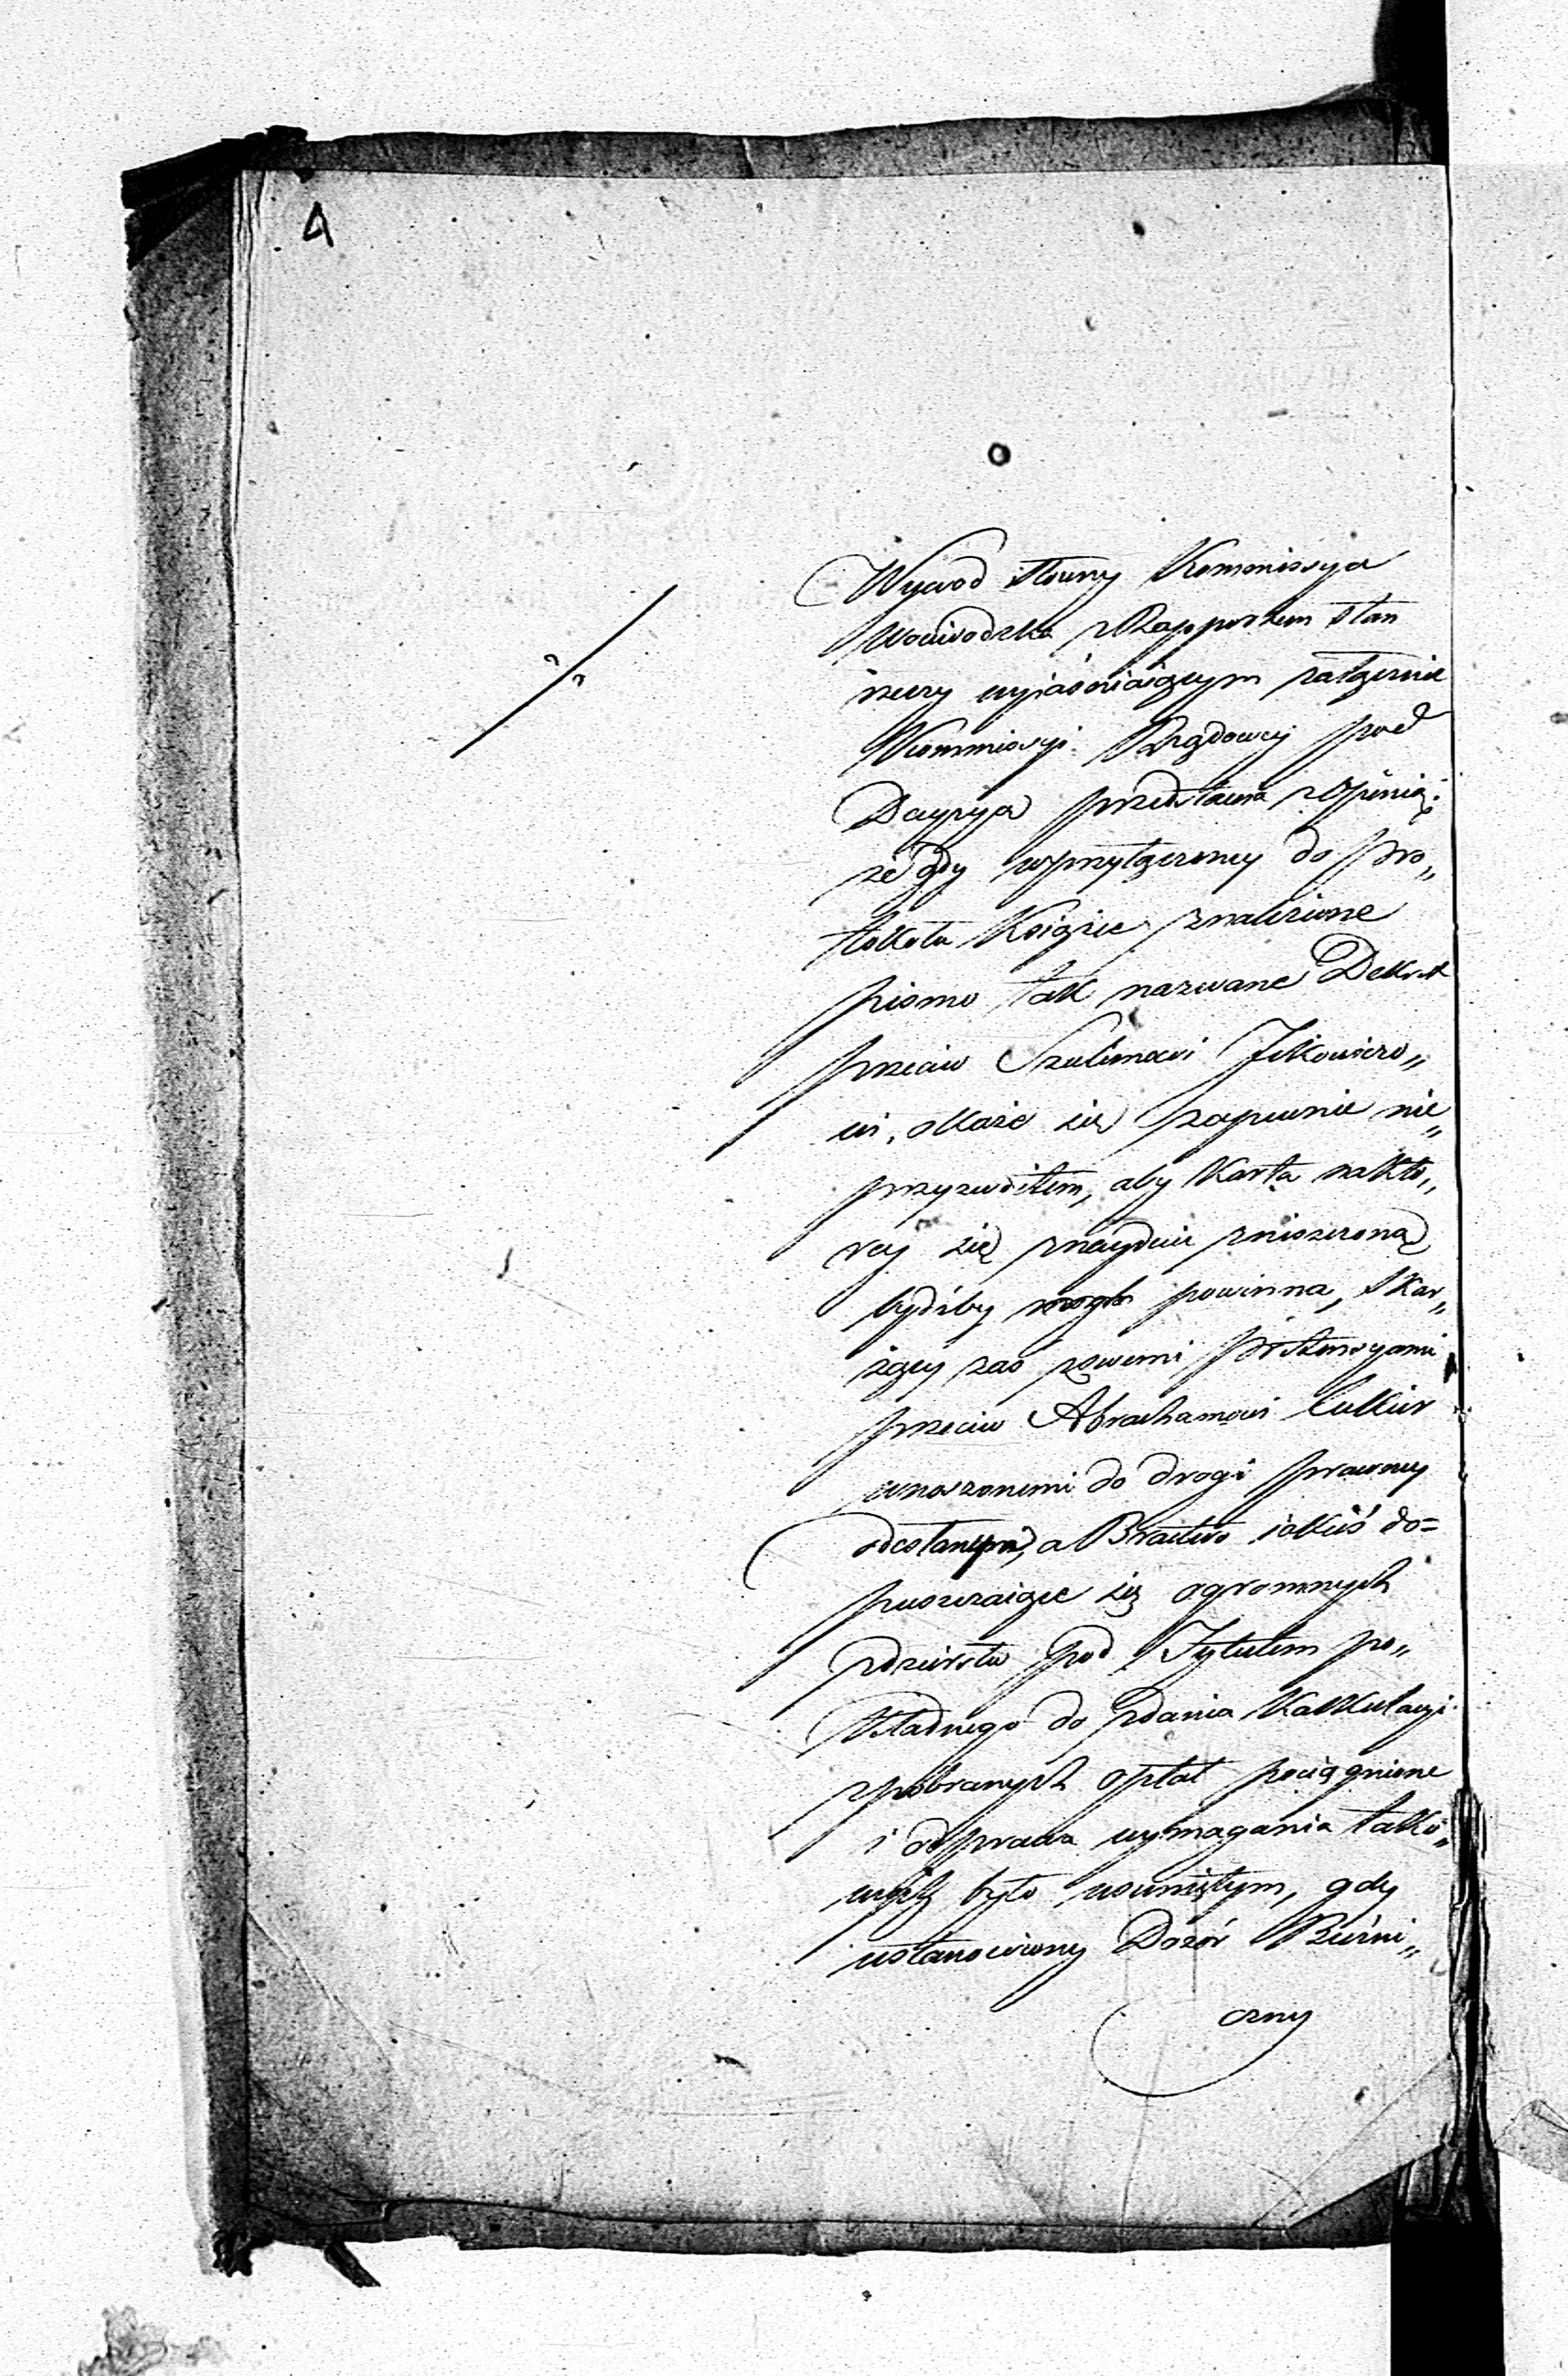 4
Wywod słowny Kommissya
Woiewodzka z Rapportem stan
rzeczy wyiaśniaiącym załącznie
Kommissyi Rządowey pod
Decyzyą przedstawia z Opinią:
że gdy w przyłączoney do pro„
tokołu Księdze znalezione
pismo tak nazwane Dekret
przeciw Szulimowi Ickowiczo„
wi, okaże się zapewnie nie„
przyzwoitem, aby Karta na któ„
rey się znayduie zniszczoną
bydźby mogła powinna, Skar„
żący zaś z swemi pretensyami
przeciw Abrahamowi Cukier
wnoszonemi do drogi prawney
odesłanym, a Bractwo iakieś do=
puszczaiące się ogromnych
zdzierstw pod Tytułem po„
kładnego do zdania Kalkulacyi
z pobranych opłat pociągnione
i od prawa wymagania tako„
wych było usuniętym, gdy
ustanowiony Dozór Bużni„
czny